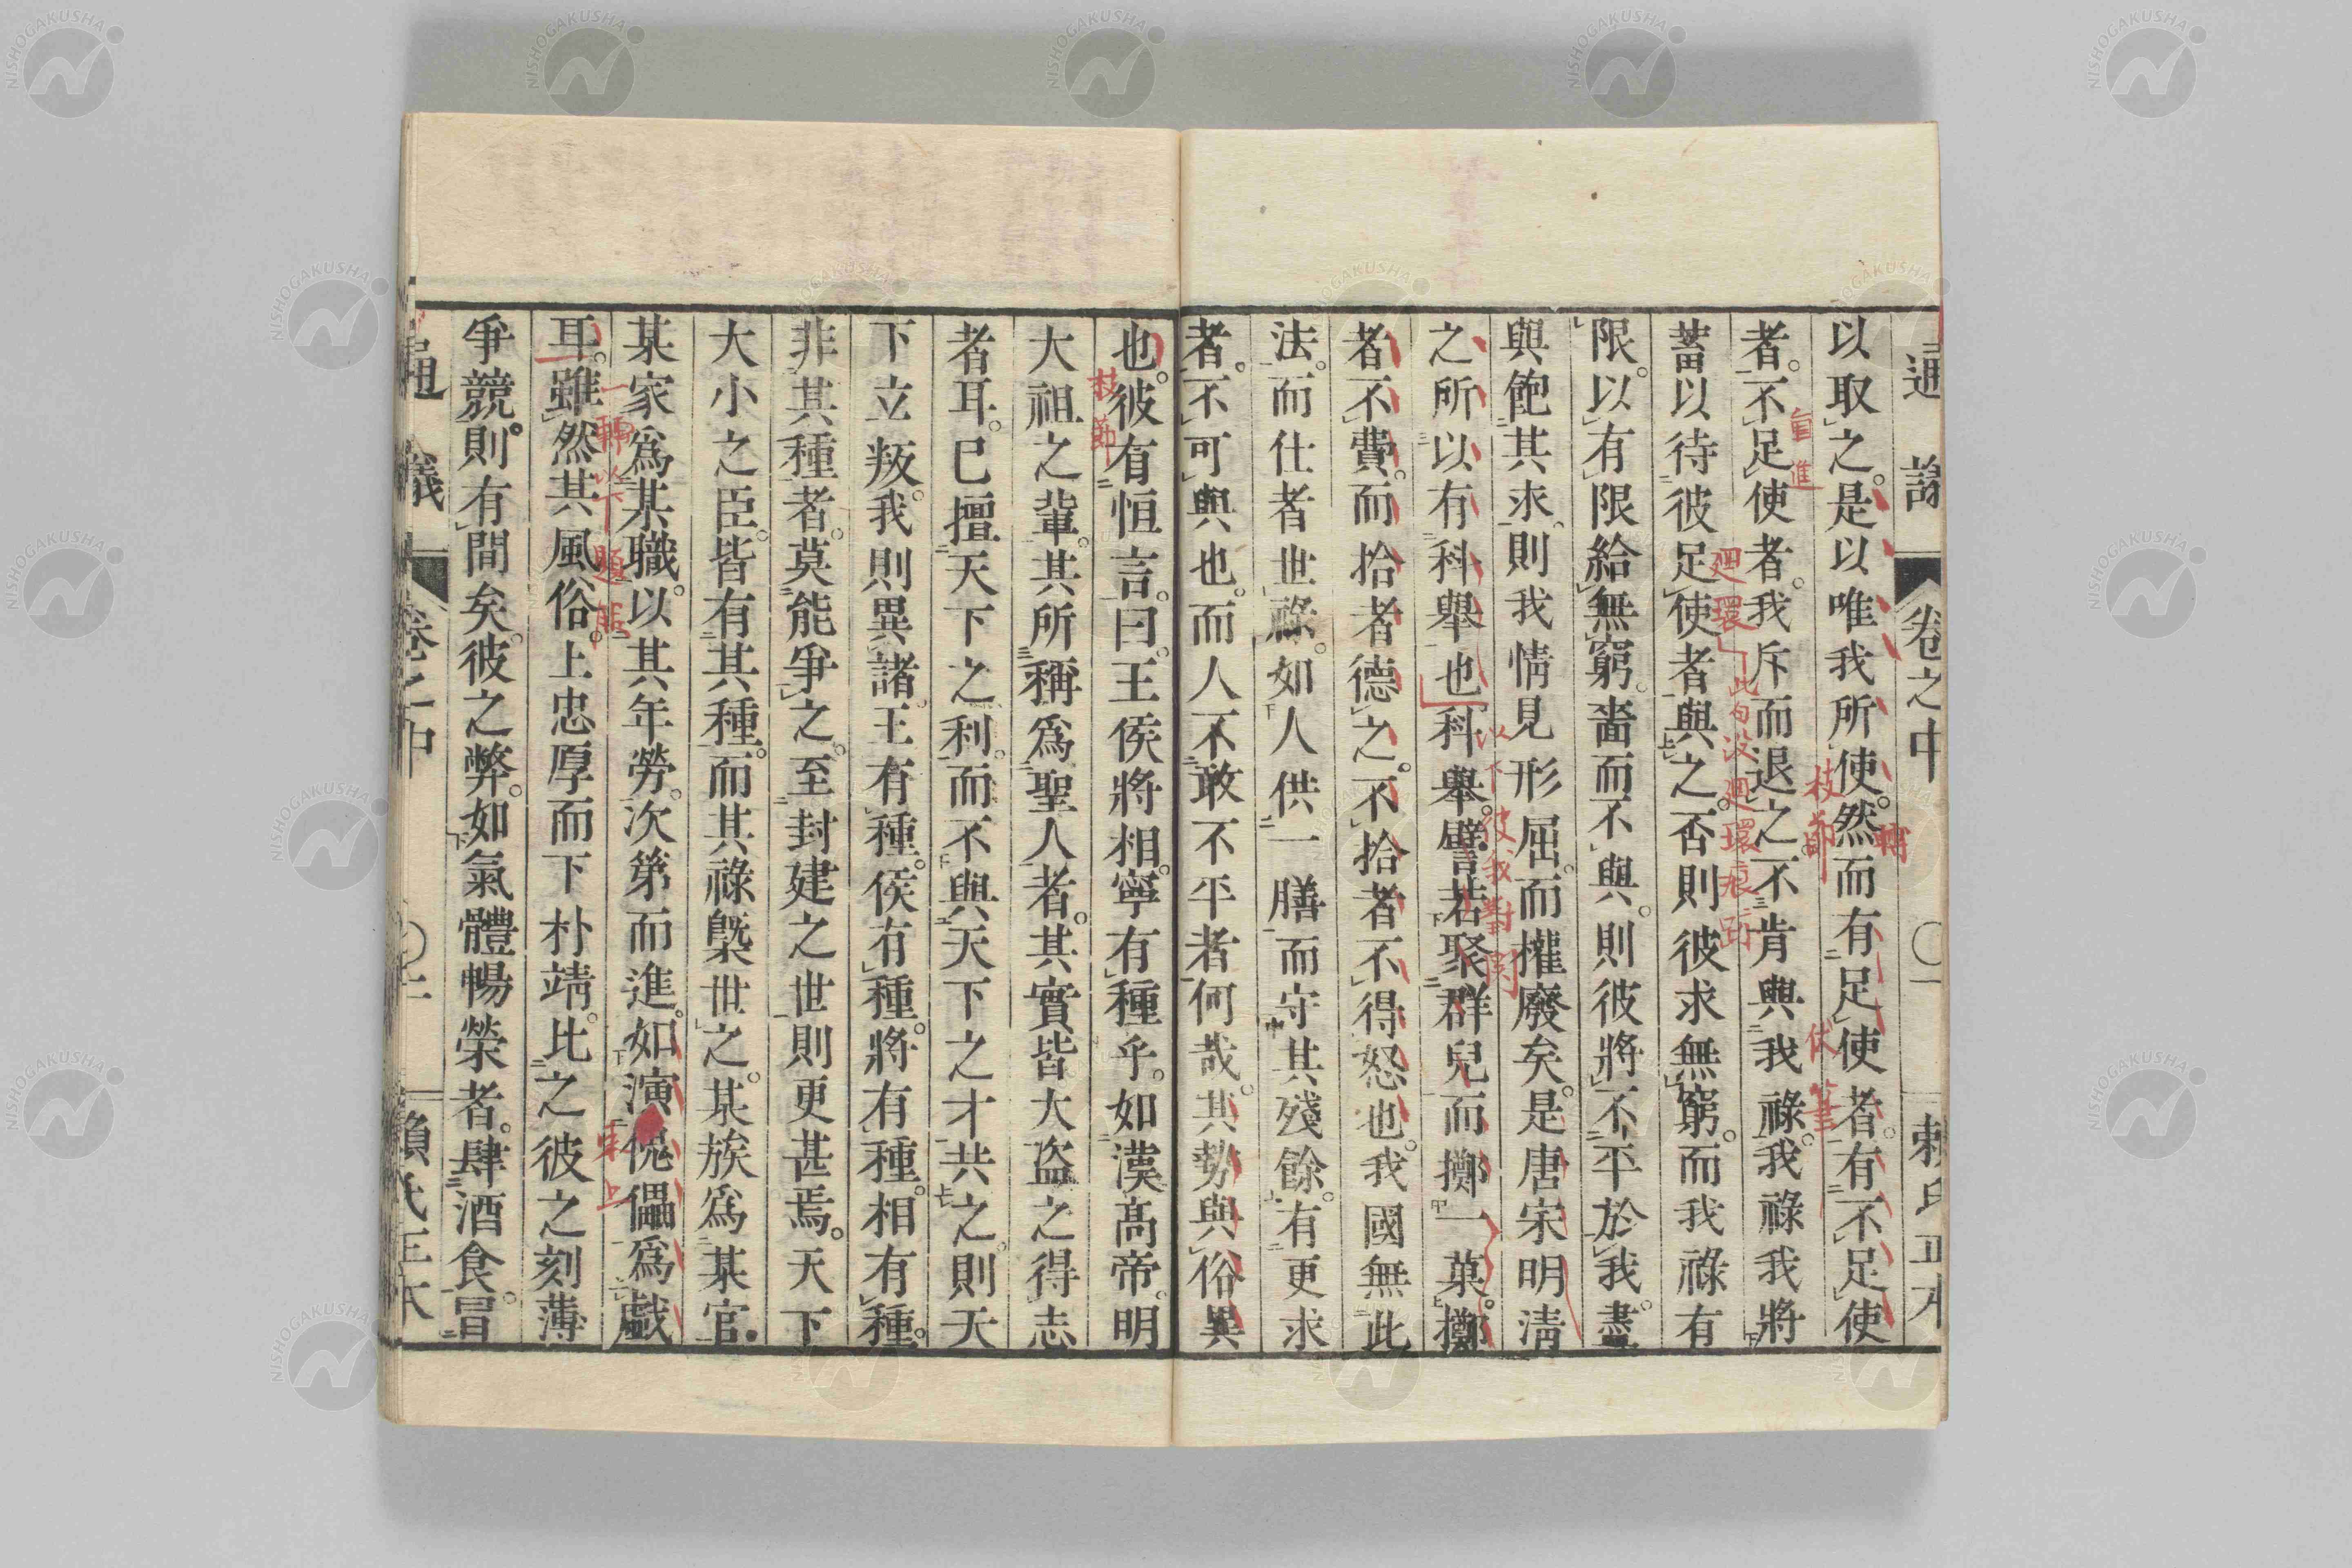 通議 卷之中 〇一 賴氏正本
以取之。是以唯我所使。然而有足使者。有不足使
者。不足使者。我斥而退之。不肯與我祿。我祿我將
蓄以待彼足使者與之。否則彼求無窮。而我祿有
限。以有限給無窮。嗇而不與。則彼將不平於我。盡
與飽其求。則我情見形屈。而權廢矣。是唐宋明淸
之所以有科舉也科舉。譬若聚群兒而擲一菓。擲
者不費。而拾者德之。不拾者不得怒也。我國無此
法。而仕者世祿。如人供一膳而守其殘餘。有更求
者。不可與也。而人不敢不平者何哉。其勢與俗異
也。彼有恒言。曰。王侯將相。寧有種乎。如漢高帝。明
大祖之輩。其所稱爲聖人者。其實皆大盜之得志
者耳。已擅天下之利。而不與天下之才共之。則天
下立叛。我則異諸。王有種。侯有種。將有種。相有種。
非其種者。莫能爭之。至封建之世則更甚焉。天下
大小之臣。皆有其種。而其祿槩世之。某族爲某官
某家爲某職。以其年勞。次第而進。如演傀儡爲戲
耳。雖然其風俗。上忠厚而下朴靖。比之彼之刻薄
爭競。則有間矣。彼之弊。如氣體暢榮者。肆酒食。冒
通議 卷之中 〇二 賴氏正本
轉
枝節
伏筆
直進
廻環
此句沒廻環痕跡
以下彼我對閃
枝節
一轉以下題
束上